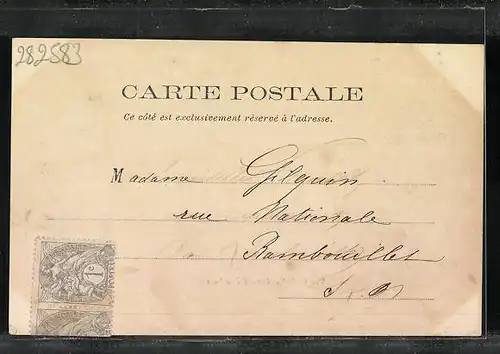 282583
CARTE POSTALE
Ce côté est exclusivement réservé à l'adresse.
Madame Gilquin
rue Nationale
Rambouillet
S. O
1c